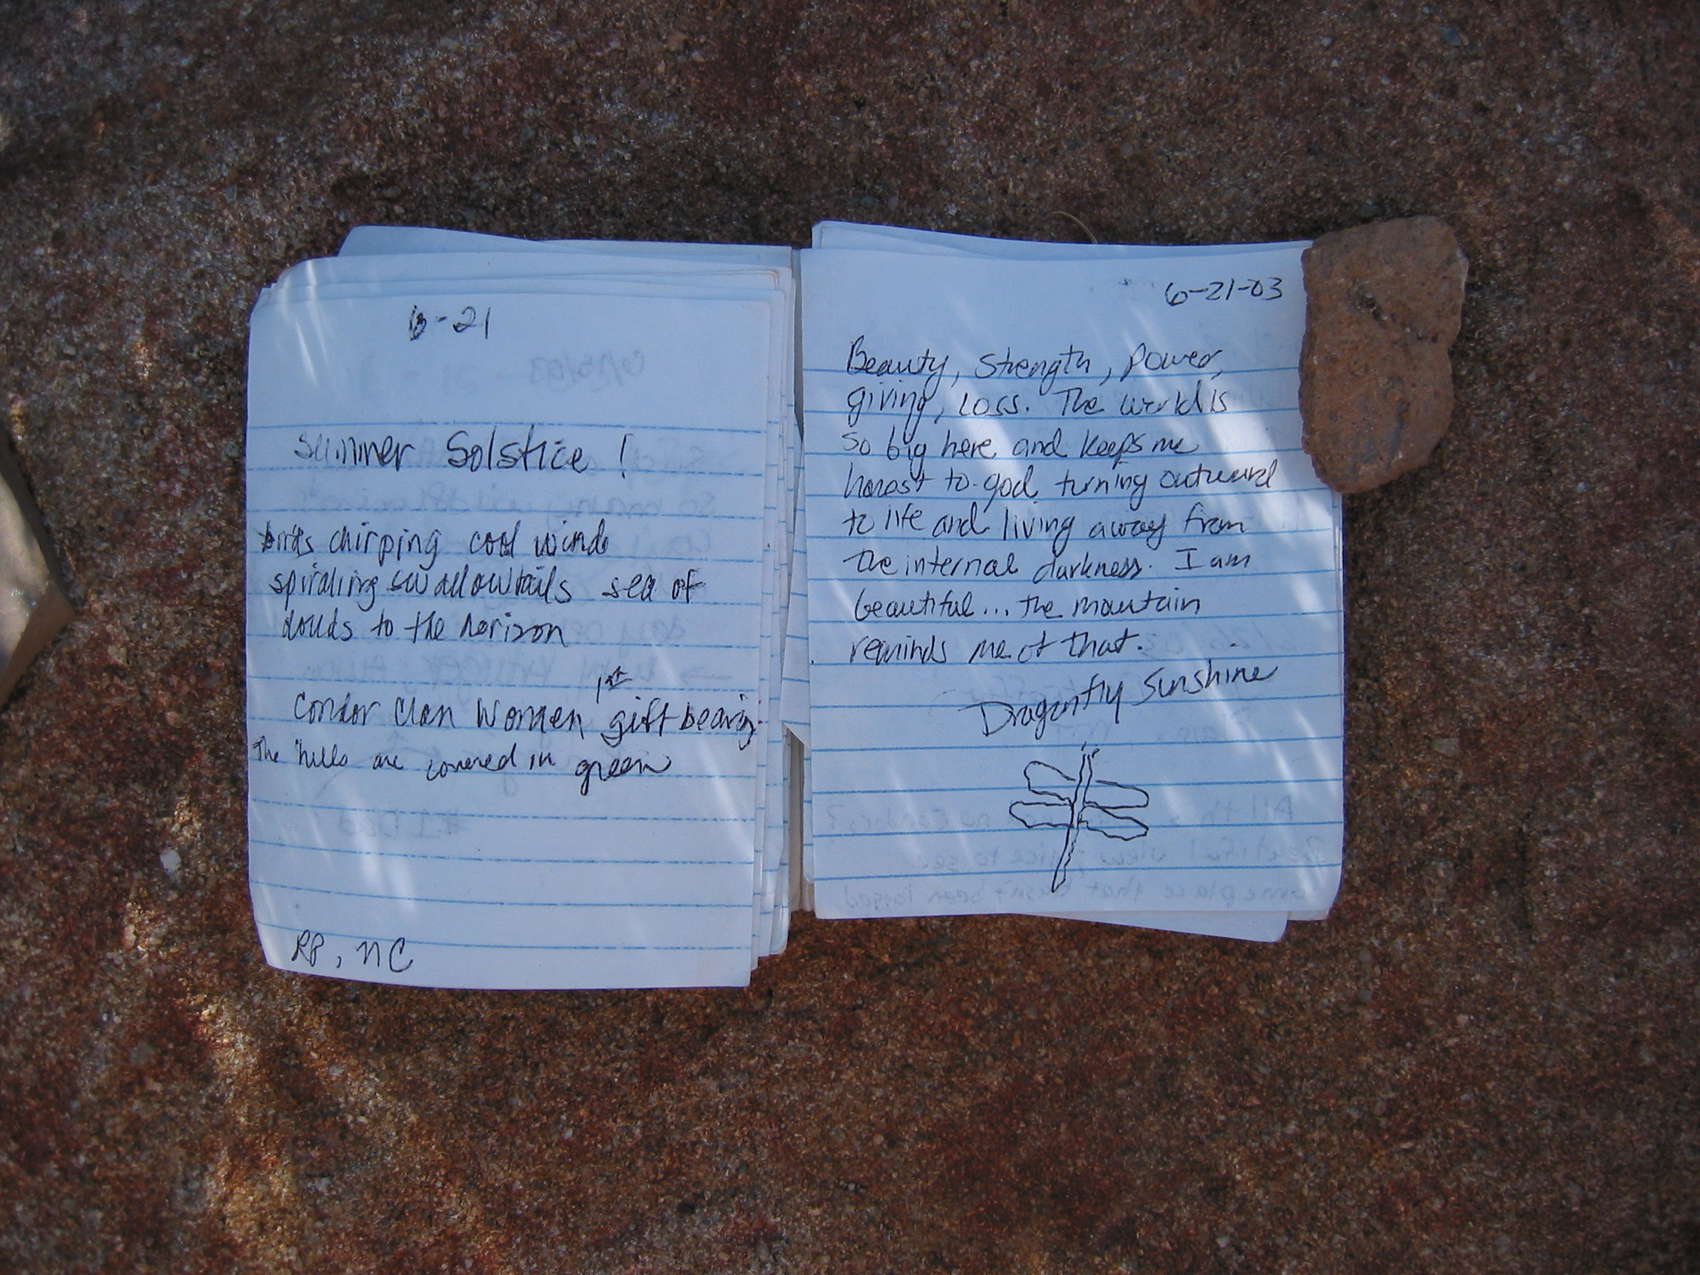 6-21
Summer Solstice !
birds chirping cool wind
spiraling swallowtails sea of
clouds to the horizon
1st
Condor Clan Women gift bearing
The hills are covered in green
RP, NC
6-21-03
Beauty, strength, power,
giving, loss. The world is
so big here and keeps me
honest to god turning outward
to life and living away from
the internal darkness. I am
beautiful... the mountain
reminds me of that.
Dragonfly Sunshine